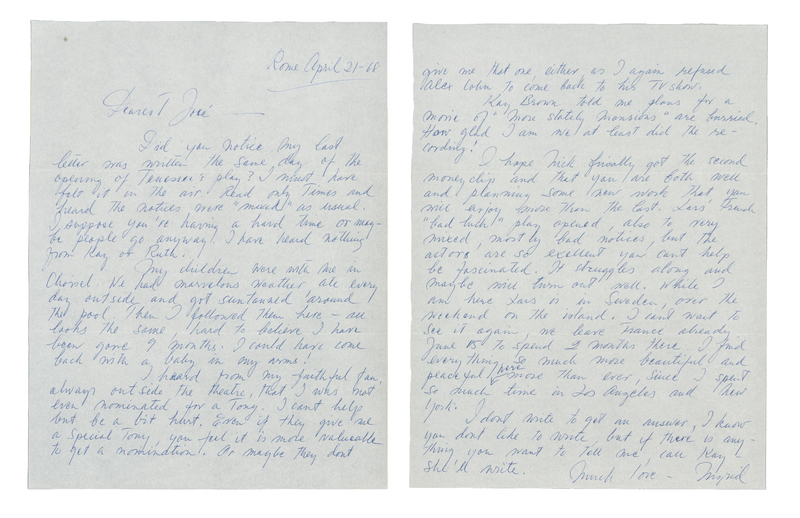 Rome April 21-68
Dearest José —
Did you notice my last
letter was written the same day of the
opening of Tennessee's play? I must have
felt it in the air. Read only Times and
heard the notices were "mixed" as usual.
I suppose you're having a hard time or may-
be people go anyway. I have heard nothing
from Kay or Ruth.
My children were with me in
Choisel. We had marvelous weather ate every
day outside and got suntanned around
the pool. Then I followed them here - all
looks the same, hard to believe I have
been gone 9 months. I could have come
back with a baby in my arms!
I heard from my faithful fan,
always outside the theatre, that I was not
even nominated for a Tony. I can't help
but be a bit hurt. Even if they give me
a Special Tony, you feel it is more valuable
to get a nomination. Or maybe they dont
give me that one, either, as I again refused
Alex Cohn to come back to his TV show.
Kay Brown told me plans for a
movie of "More stately mansions" are burried.
How glad I am we at least did the re-
cording!
I hope Nick finally got the second
money clip and that you are both well
and planning some new work that you
will enjoy more than the last. Lars' French
"bad luck" play opened, also to very
mixed, mostly bad notices, but the
actors are so excellent you can't help
be fascinated. It struggles along and
maybe will turn out well. While I
am here Lars is in Sweden, over the
weekend on the island. I can't wait to
see it again, we leave France already
June 15 to spend 2 months there. I find
everything so much more beautiful and
peaceful here more than ever, since I spent
so much time in Los Angeles and New
York.
I dont write to get an answer, I know
you dont like to write, but if there is any-
thing you want to tell me, call Kay -
She'll write.
Much love - Ingrid